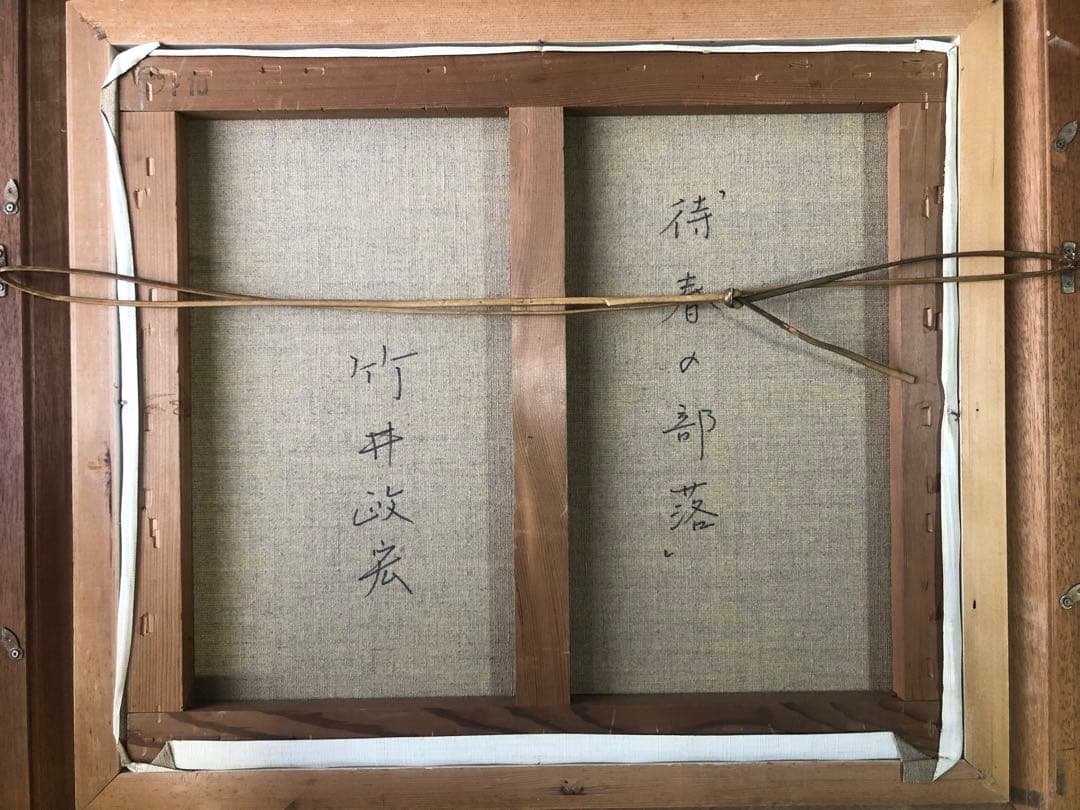 「待春の部落」
竹井政宏